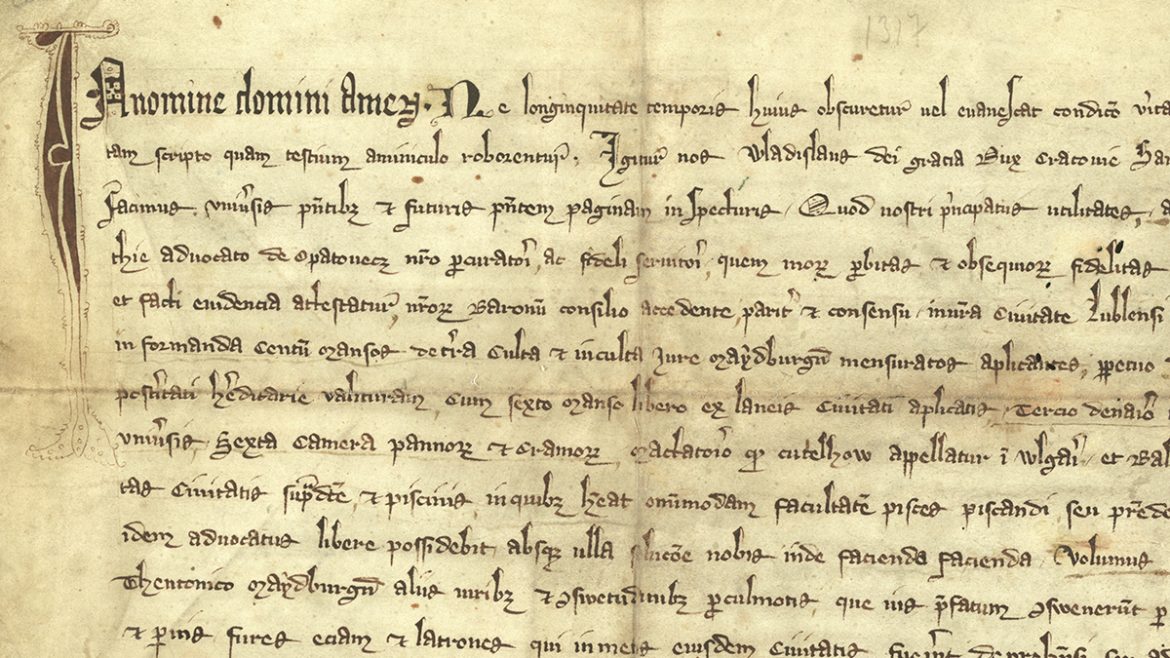 1317
In nomine domini amen. Ne longinquitate temporis huius obscuretur vel evanescat condicõ
tam scripto quam testium aminiculo roborentur. Igitur nos Wladislaus dei gracia Dux Cracovie San
facimus universis pñtibz et futuris pñtem paginam inspecturis Quod nostri pˀncipatus utilitates,
thie advocato de Opatovecz nr̃o pcuratori, ac fideli servitori, quem morz probitas et obsequiorz fidelitas
et facti evidencia attestatur, nr̃orz Baronũ consilio accedente parit et consensu in nr̃a Civitate Lublensi
in formanda Centũ Mansos de tr̃ra Culta et inculta Jure Maydburgñ mensuratos aplicantes, ppetuo
posteritati hereditarie valituram, Cum sexto Manso libero ex laneis Civitati aplicatis, Tercio denario
universis, Sexta Camera pannorz et Cramorz, Mactatorio qd cutelhow appellatur ĩ wlgari et Bal
tas Civitatis supradcte, et piscinis, in quibz heat omñmodam facultatẽ pisces piscandi seu prẽde
idem advocatus libere possidebit absqz ulla solucõe nobis inde facienda facienda. Volumus
Theutonico Maydburgñ aliis iuribz et ɔswetudinibz pculmotis, que iuˀs pˀfatum ɔswenerũt p
et ping fures eciam et latrones qui in metis eiusdem Civitatis fuerint deprehensi seu